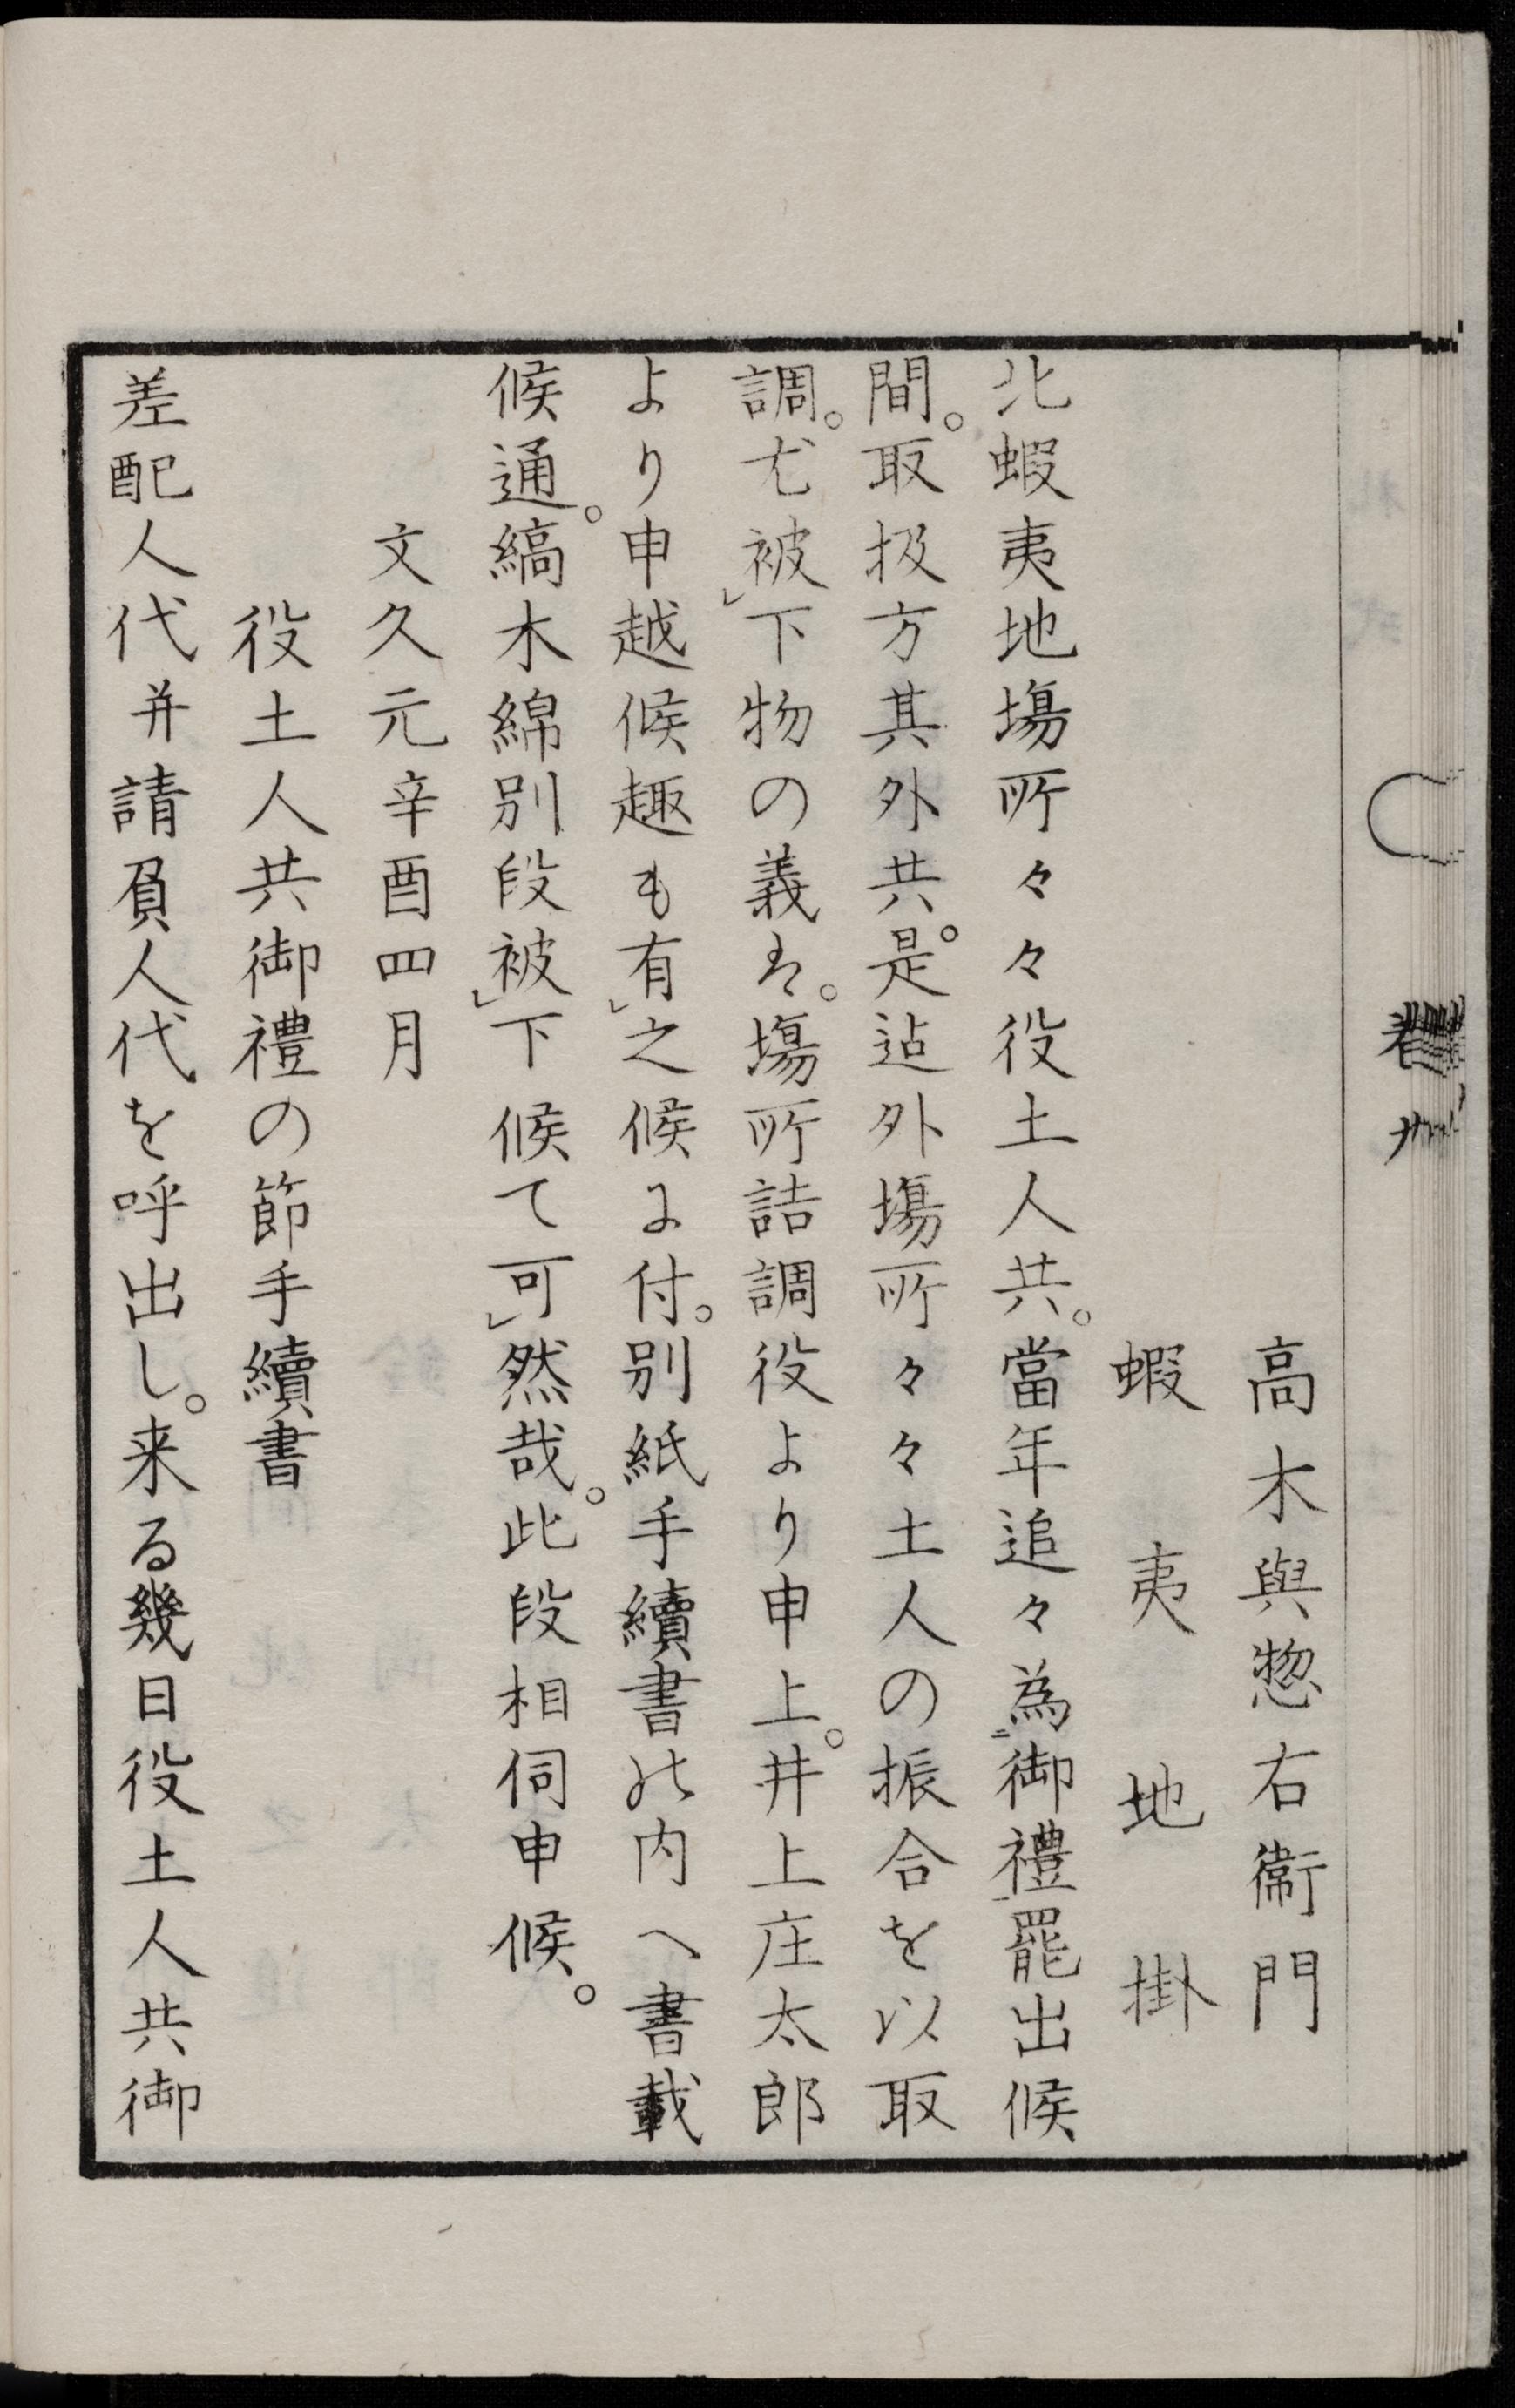 高木與惣右衞門
蝦夷地掛
北蝦夷地塲所々々役土人共。當年追々為㆓御禮㆒罷出候
間。取扱方其外共。是迠外塲所々々土人の振合を以取
調。尤被㆑下物の義ハ。塲所詰調役より申上。井上庄太郎
より申越候趣も有㆑之候に付。別紙手續書の内へ書載
候通。縞木綿別段被㆑下候て可㆑然哉。此段相伺申候。
文久元辛酉四月
役土人共御禮の節手續書
差配人代并請負人代を呼出し。来る幾日役土人共御